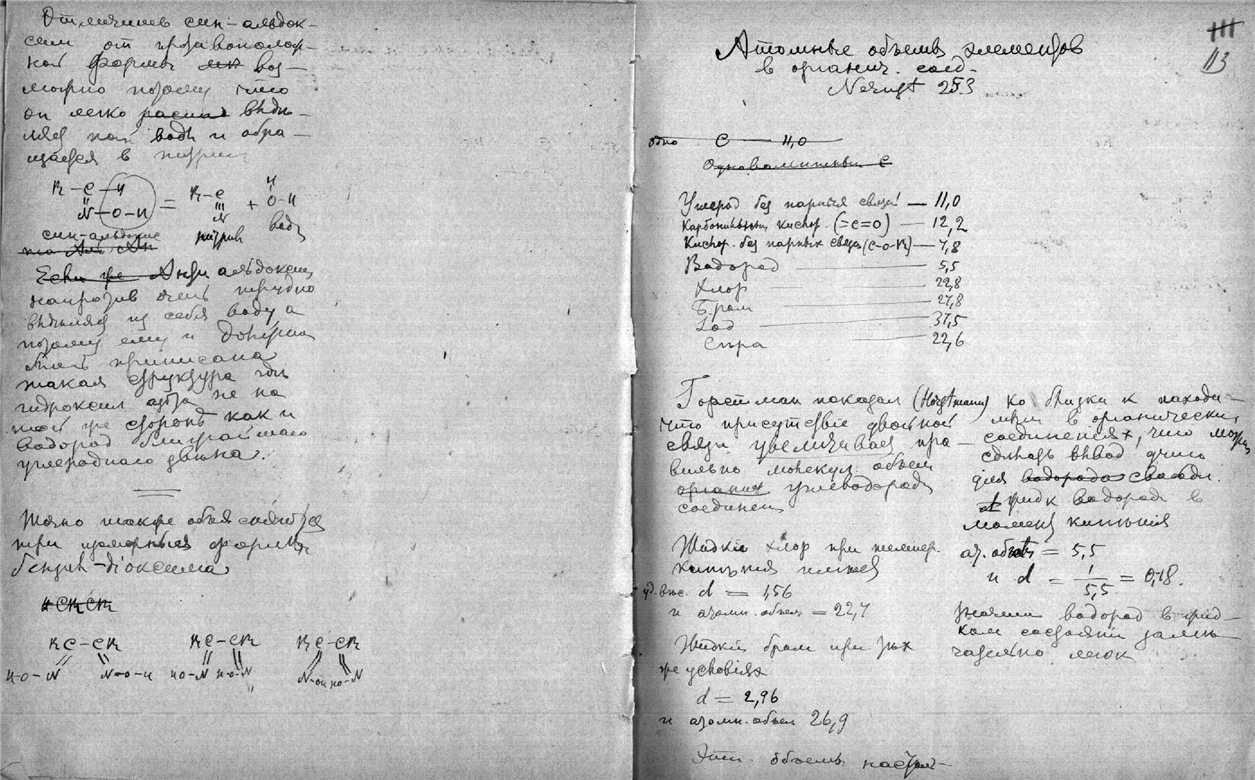 Отличие син-альдок-
сим от противополож-
ной формы воз-
можно потому что
он легко выде-
ляет воды и обра-
щается в нитрил
R — C — H
N — O — H
=
R — C
N
+
H
O — H
син-альдоксим
нитрил
вода
Если же Анти альдоксим
напротив очень трудно
выделяет из себя воду, а
потому ему и должна
быть приписана
такая структура где
гидроксил азота не на
той же стороне как и
водород ближайшаго
углероднаго звена.
Точно также объясняются
три изомерныя формы
бензил-диоксима
RC — CR
HO-N N-O-H
RC — CR
HO-N HO-N
RC — CR
N-OH HO-N
III
113
Атомные объемы элементов
в органич. соед.
Nernst 253
одно C — 11,0
Одноатомный C
Углерод без парных связей — 11,0
Карбонильный кислор. (=C=O) — 12,2
Кислор. без парных связей (C-O-R) — 7,8
Водород — 5,5
Хлор — 22,8
Бром — 27,8
Iод — 37,5
Сера — 22,6
Горстман показал (Horstmann)
что присутствие двойной
связи увеличивает пра-
вильно молекул. объем
органич углеводород
соединен
Жидкий хлор при темпер.
кипения имеет
уд. вес. d = 1,56
и атомн. объем = 22,7
Жидкий бром при тех
же условиях
d = 2,96
и атомн. объем 26,9
Эти объемы настоль-
ко близки к находи-
мым в органических
соединениях, что можно
сделать вывод
для водорода свободн.
жидк водорода в
момент кипения
ат. объем = 5,5
и d = 1/5,5 = 0,18.
водород в жид-
ком состоянии замеч-
ательно легок